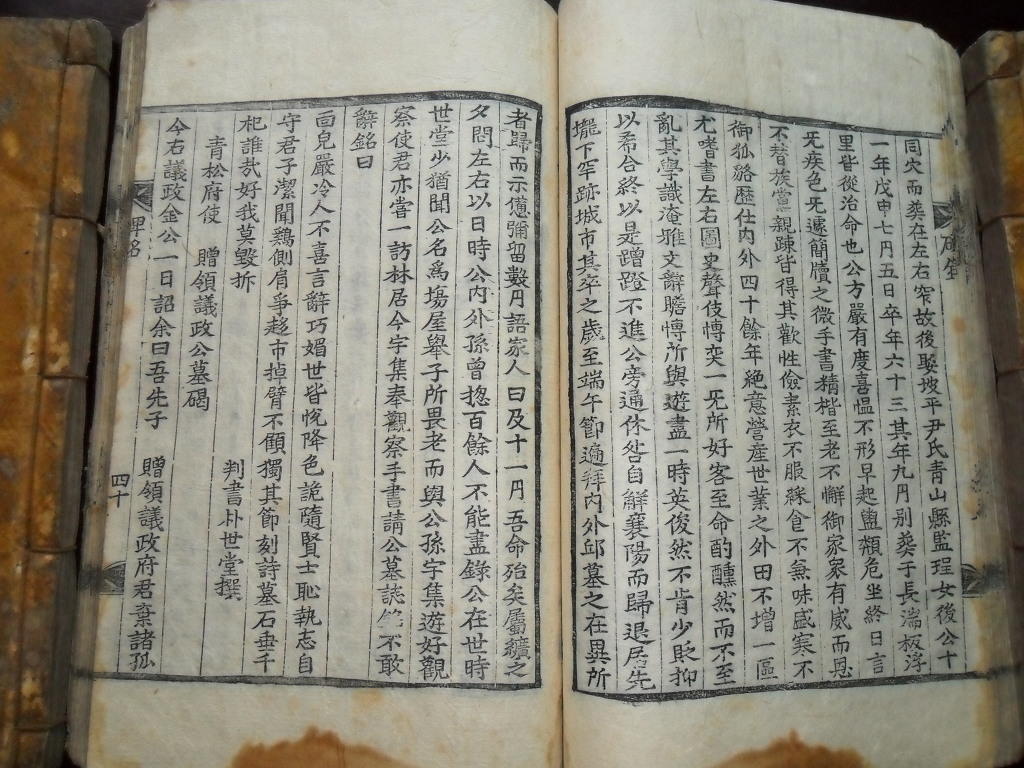 同穴而葬在左右窄故後娶坡平尹氏靑山縣監珵女後公十
一年戊申七月五日卒年六十三其年九月別葬于長湍板浮
里皆從治命也公方嚴有度喜慍不形早起盥頮危坐終日言
旡疾色旡遽簡牘之微手書精楷至老不懈御家衆有威而恩
不替族黨親踈皆得其歡性儉素衣不服綵食不兼味盛寒不
御狐貉歷仕內外四十餘年絶意營産世業之外田不增一區
尤嗜書左右圖史聲伎愽奕一旡所好客至命酌醺然而不至
亂其學識淹雅文辭贍愽所與遊盡一時英俊然不肯少貶抑
以希合終以是蹭蹬不進公旁通休咎自解襄陽而歸退居先
壠下罕跡城市其卒之歲至端午節遍拜內外邱墓之在異所
者歸而示憊彌留數月語家人曰及十一月吾命殆矣屬纊之
夕問左右以日時公內外孫曾摠百餘人不能盡錄公在世時
世堂少猶聞公名爲塲屋擧子所畏老而與公孫宇集遊好觀
察使君亦嘗一訪林居今宇集奉觀察手書請公墓誌 不敢
辭銘曰
面皃嚴冷人不喜言辭巧媚世皆悅降色詭隨賢士恥執志自
守君子潔聞鷄側肩爭趍市掉臂不顧獨其節刻詩墓石垂千
祀誰哉好我莫毁拆
靑松府使 贈領議政公墓碣
判書朴世堂撰
今右議政金公一日詔余曰吾先子 贈領議政府君棄諸孤
碑銘
四十